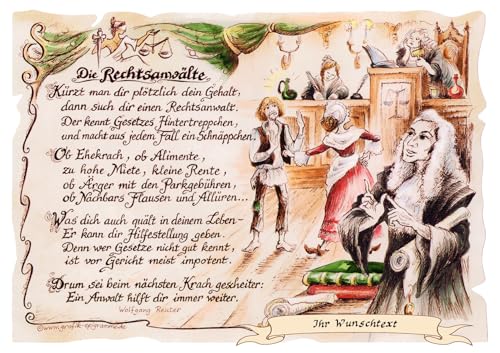 Die Rechtsanwälte
Kürzt man dir plötzlich dein Gehalt,
dann such dir einen Rechtsanwalt.
Der kennt Gesetzes Hintertreppchen,
und macht aus jedem Fall ein Schnäppchen.
Ob Ehekrach, ob Alimente,
zu hohe Miete, kleine Rente,
ob Ärger mit den Parkgebühren,
ob Nachbars Flausen und Allüren...
Was dich auch quält in deinem Leben-
Er kann dir Hilfestellung geben.
Denn wer Gesetze nicht gut kennt,
ist vor Gericht meist impotent.
Drum sei beim nächsten Krach gescheiter:
Ein Anwalt hilft dir immer weiter.
Wolfgang Reuter
©www.grafik-epigramme.de
Ihr Wunschtext